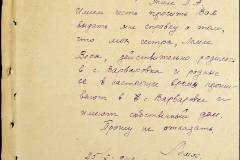 Имею честь просить Вас
выдать мне справку в том,
что моя сестра, Лотис
действительно родилась
в с. Варваровка и родные
ее в настоящее время прожи-
вают в с. Варваровке и
имеют собственный дом.
Прошу не отказать.